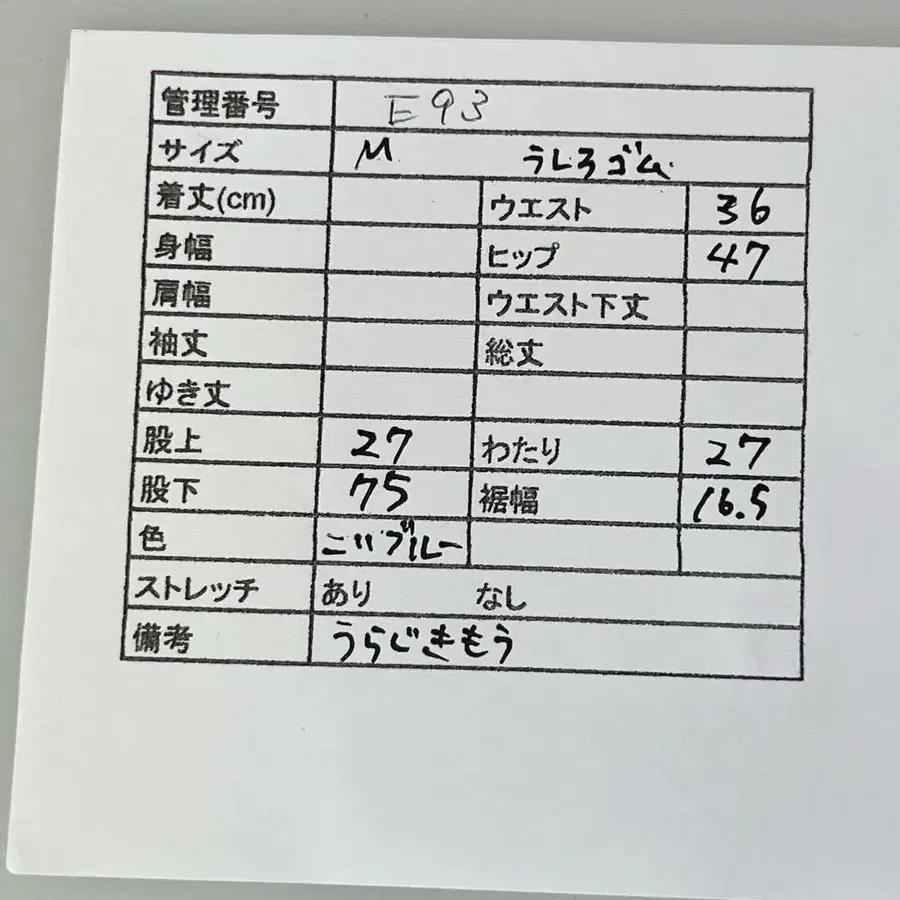 管理番号 E93
サイズ M うしろゴム
着丈(cm) ウエスト 36
身幅 ヒップ 47
肩幅 ウエスト下丈
袖丈 総丈
ゆき丈
股上 27 わたり 27
股下 75 裾幅 16.5
色 こいブルー
ストレッチ あり なし
備考 うらじきもう